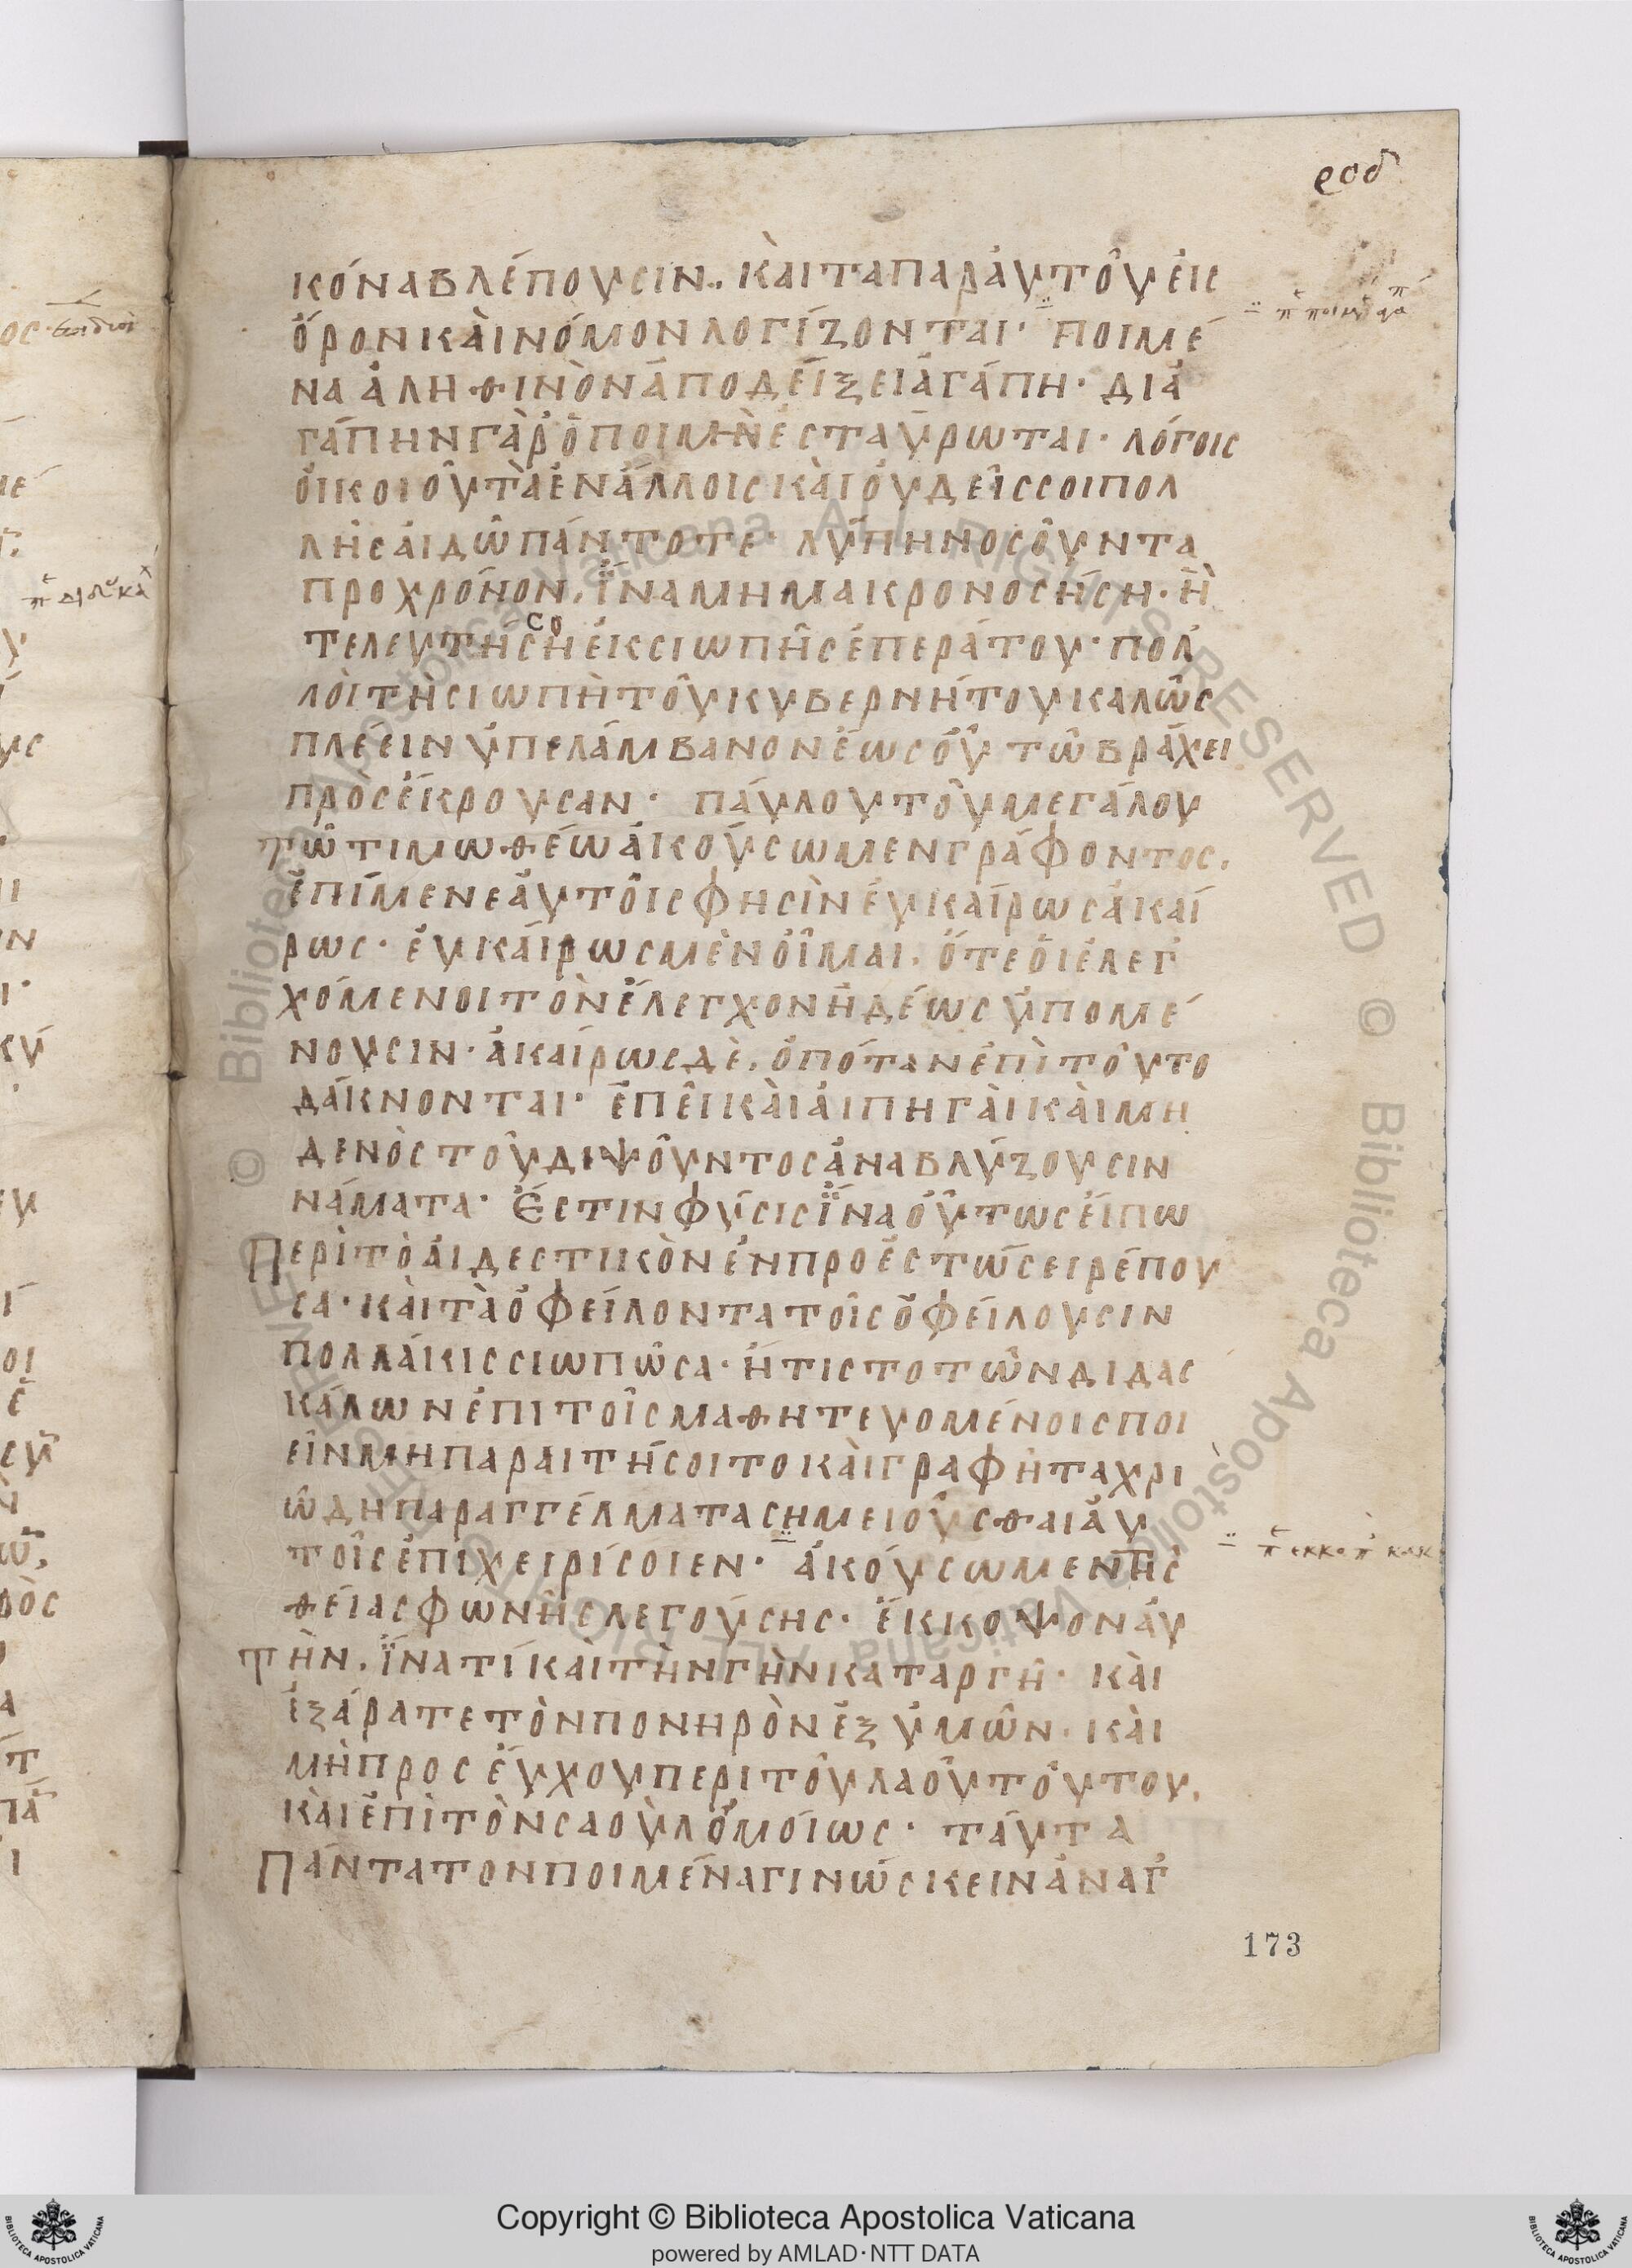 ροδ
κόναβλέπουσιν·, κὰιταπαράυτοῦεις
ὅρονκὰινόμονλογίζονται· ποιμέ
ναἀληθινὸναποδείξειἀγάπη· διὰ
γάπηνγὰρὁποιμὴνἐσταύρωται· λόγοις
ὀικοιοῦτὰἐνἄλλοισκὰιὀυδεῖσσοιπολ
λῆσἀιδῶπάντοτε· λύπηνοσοῦντα
προχρόνον, ἵναμημακρονοσήση· ἢ
τελευτήσηἐκσιωπῆσἐπεράτου· πολ
λὸιτῆσιωπῆτοῦκυβερνήτουκαλῶς
πλέεινὑπελάμβανονἕωσοῦτῶβράχει
πρὸσέκρουσαν· πάυλουτοῦμεγάλου
τῶτιμωθέωἀκούσωμενγράφοντος,
ἐπίμενεἀυτοῖσφησὶνἐυκαίρωσἀκαί
ρως· ἐυκάιρωσμὲνὀῖμαι, ὅτεὁιἐλεγ
χόμενοιτὸνἔλεγχονἡδέωσὑπομέ
νουσιν· ἀκαίρωσδὲ, ὁπότανἐπὶτοῦτο
δάκνονται· ἐπεῖκὰιἁιπηγὰικὰιμη
δενὸστοῦδιψοῦντοσἀναβλύζουσιν
νάματα· ἔστινφύσισἵναοὕτωσείπω
Περὶτὸἀιδεστικὸνἐνπροεστώσειρέπου
σα· κὰιτὰὀφείλοντατοῖσὀφείλουσιν
πολλάκισσιωπῶσα· ἥτιστοτῶνδιδασ
κάλωνἐπιτοῖσμαθητευομένοισποι
εῖνμηπαραιτήσοιτοκὰιγραφῆταχρι
ώδηπαραγγέλματασημειοῦσθαιἀυ
τοῖσἐπιχειρίσοιεν· ἀκούσωμεντῆσ
θείασφωνῆσλεγούσης· ἔκκοψονἀυ
τὴν, ἵνατίκὰιτὴνγῆνκαταργῆ· κὰι
ἐξάρατετὸνπονηρὸνἐξὑμῶν· κὰι
μὴπροσέυχουπεριτοῦλαοῦτούτου,
κὰιἐπὶτὸνσαοὺλὁμόιως· τάυτα
Πάντατονποιμέναγινώσκεινἀναγ
173
Copyright © Biblioteca Apostolica Vaticana
powered by AMLAD·NTT DATA